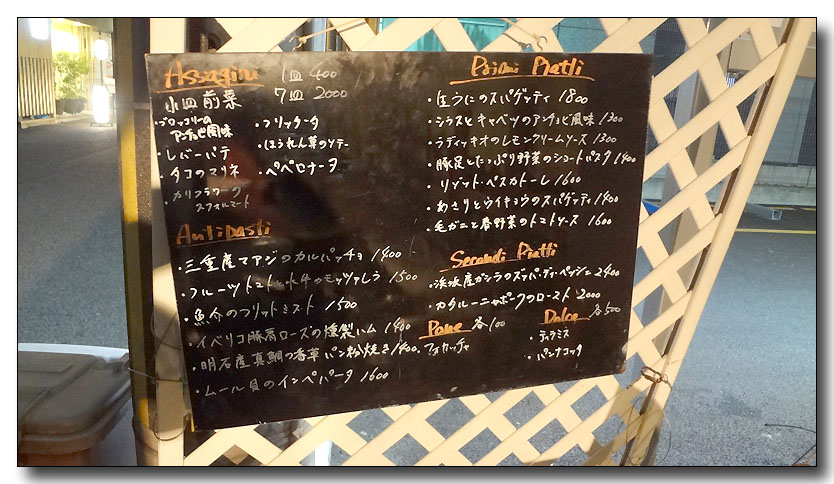 Assagini 1皿 400
小皿前菜 7皿 2000
・ブロッコリーの
アンチョビ風味
・レバーパテ
・タコのマリネ
・カリフラワーの
スフォルマート
・フリッタータ
・ほうれん草のソテー
・ペペロナータ
Antipasti
・三重産マアジのカルパッチョ 1400
・フルーツトマトと水牛のモッツァレラ 1500
・魚介のフリットミスト 1500
・イベリコ豚肩ロースの燻製ハム 1400
・明石産真鯛の香草パン粉焼き 1400
・ムール貝のインペパータ 1600
Primi Piatti
・生うにのスパゲッティ 1800
・シラスとキャベツのアンチョビ風味 1300
・ラディッキオのレモンクリームソース 1300
・豚足とたっぷり野菜のショートパスタ 1400
・リゾット・ペスカトーレ 1600
・あさりとウイキョウのスパゲッティ 1400
・毛ガニと春野菜のトマトソース 1600
Secondi Piatti
・浜坂産ガシラのズッパ・ディ・ペッシェ 2400
・カタルーニャポークのロースト 2000
Pane 各100
・フォカッチャ
Dolce 各500
・ティラミス
・パンナコッタ